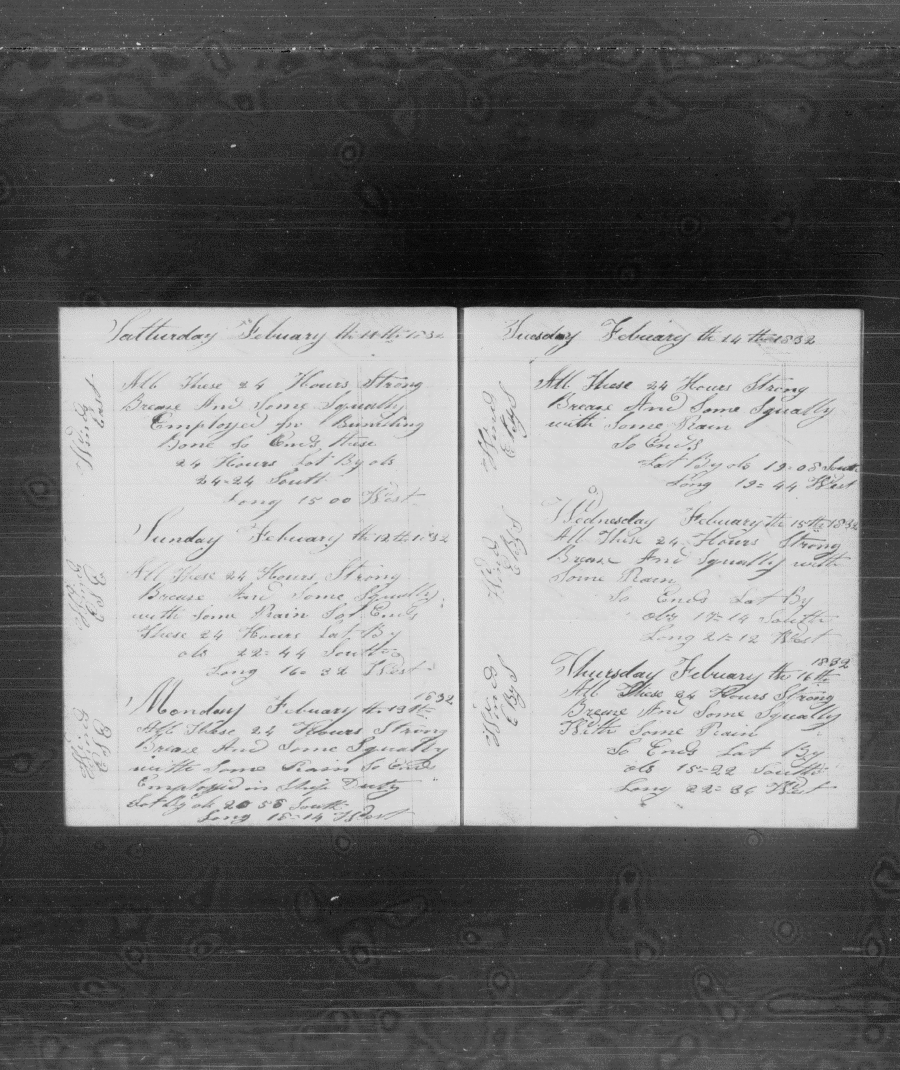 Satturday Febuary the 11th 1832
Wind East
All These 24 Hours Strong
Brease And Some Squally
Employed in Bundling
Bone So Ends these
24 Hours Lat By obs
24=24 South
Long 15 00 West
Sunday Febuary the 12th 1832
Wind ESE
All These 24 Hours Strong
Brease And Some Squally
with Some Rain So Ends
these 24 Hours Lat By
obs 22=44 South
Long 16=32 West
Monday Febuary the 13th 1832
Wind ESE
All These 24 Hours Strong
Brease And Some Squally
with Some Rain So Ends
Employed on Ship Duty
Lat By ob 20 58 South
Long 18=14 West
Tuesday Febuary the 14th 1832
Wind E By S
All These 24 Hours Strong
Brease And Some Squally
with Some Rain
So Ends
Lat By ob 19=08 South
Long 19=44 West
Wednesday Febuary the 15th 1832
Wind E By S
All These 24 Hours Strong
Brease And Squally with
Some Rain
So Ends Lat By
obs 17=14 South
Long 21=12 West
Thursday Febuary the 16th 1832
Wind E By S
All These 24 Hours Strong
Brease And Some Squally
With Some Rain
So Ends Lat By
obs 15=22 South
Long 22=36 West